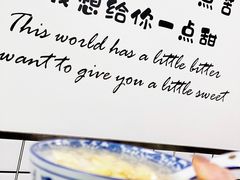 一点苦
想给你一点甜
This world has a little bitter
want to give you a little sweet